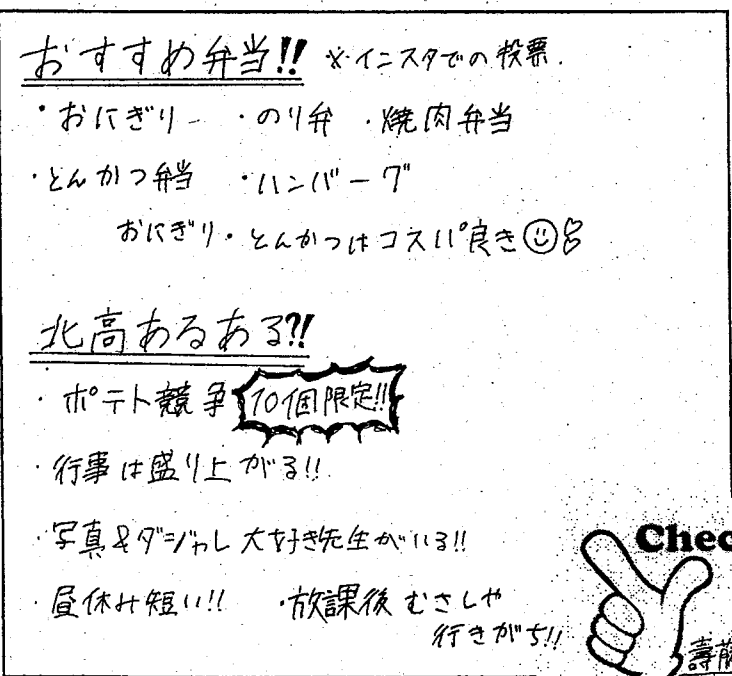 おすすめ弁当!! ※インスタでの投票.
・おにぎり ・のり弁 ・焼肉弁当
・とんかつ弁当 ・ハンバーグ
おにぎり・とんかつはコスパ良き
北高あるある?!
・ポテト競争 10個限定!!
・行事は盛り上がる!!
・写真&ダジャレ大好き先生がいる!!
・昼休み短い!! ・放課後むさしや
行きがち!!
Chec
壽